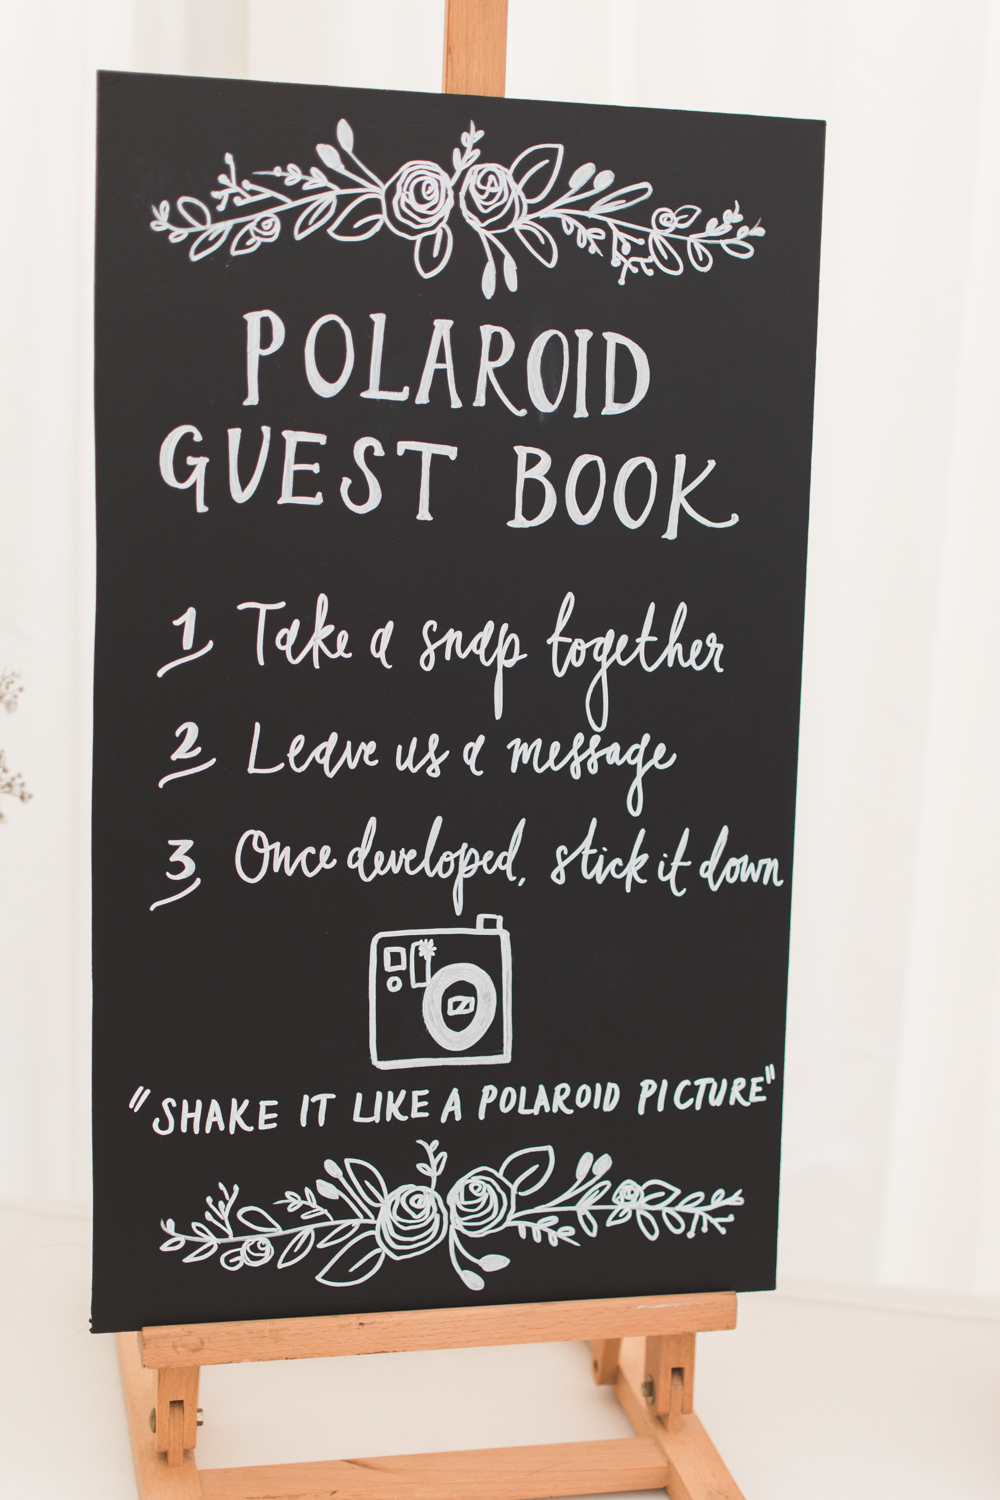 POLAROID
GUEST BOOK
1 Take a snap together
2 Leave us a message
3 Once developed, stick it down
"SHAKE IT LIKE A POLAROID PICTURE"